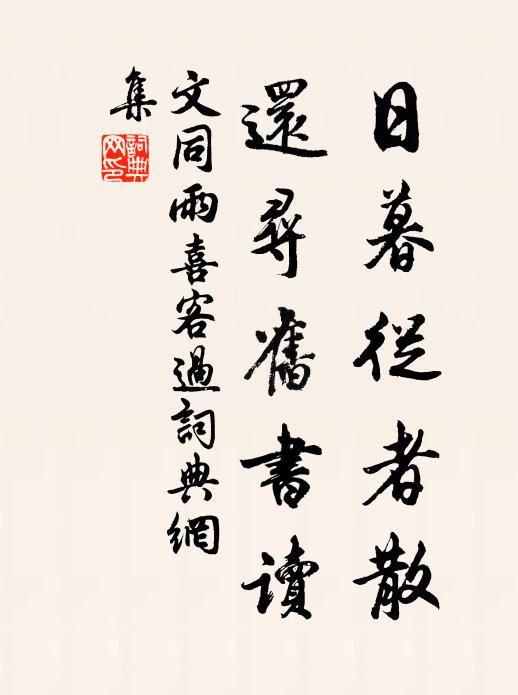 日暮從者散
還尋舊書讀
文同雨喜客過詞典網
集
詞典
網印